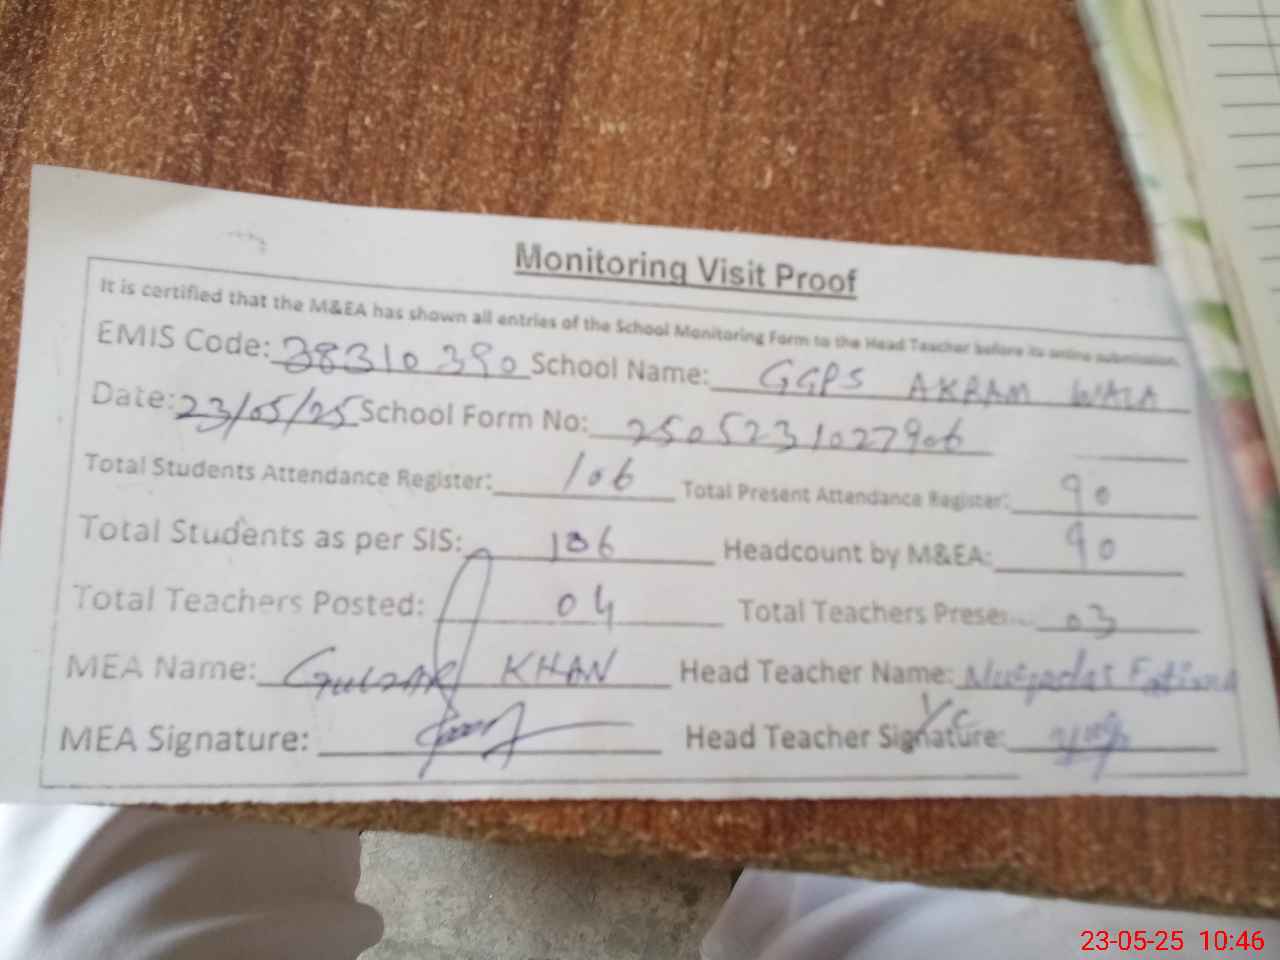 Monitoring Visit Proof
It is certified that the M&EA has shown all entries of the School Monitoring Form to the Head Teacher before its online submission.
EMIS Code: 38310390 School Name: GGPS AKRAM WALA
Date: 23/05/25 School Form No: 2505231027906
Total Students Attendance Register: 106 Total Present Attendance Register: 90
Total Students as per SIS: 106 Headcount by M&EA: 90
Total Teachers Posted: 04 Total Teachers Present: 03
MEA Name: GULZAR KHAN Head Teacher Name: Fatima
MEA Signature: Head Teacher Signature:
23-05-25 10:46